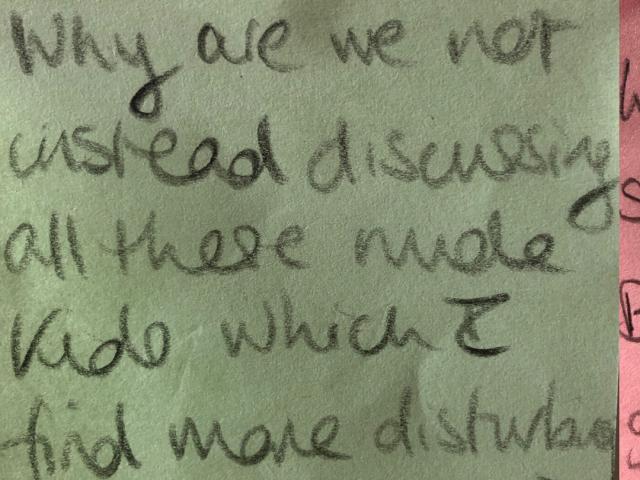 Why are we not
instead discussing
all these nude
Kids which I
find more disturbing